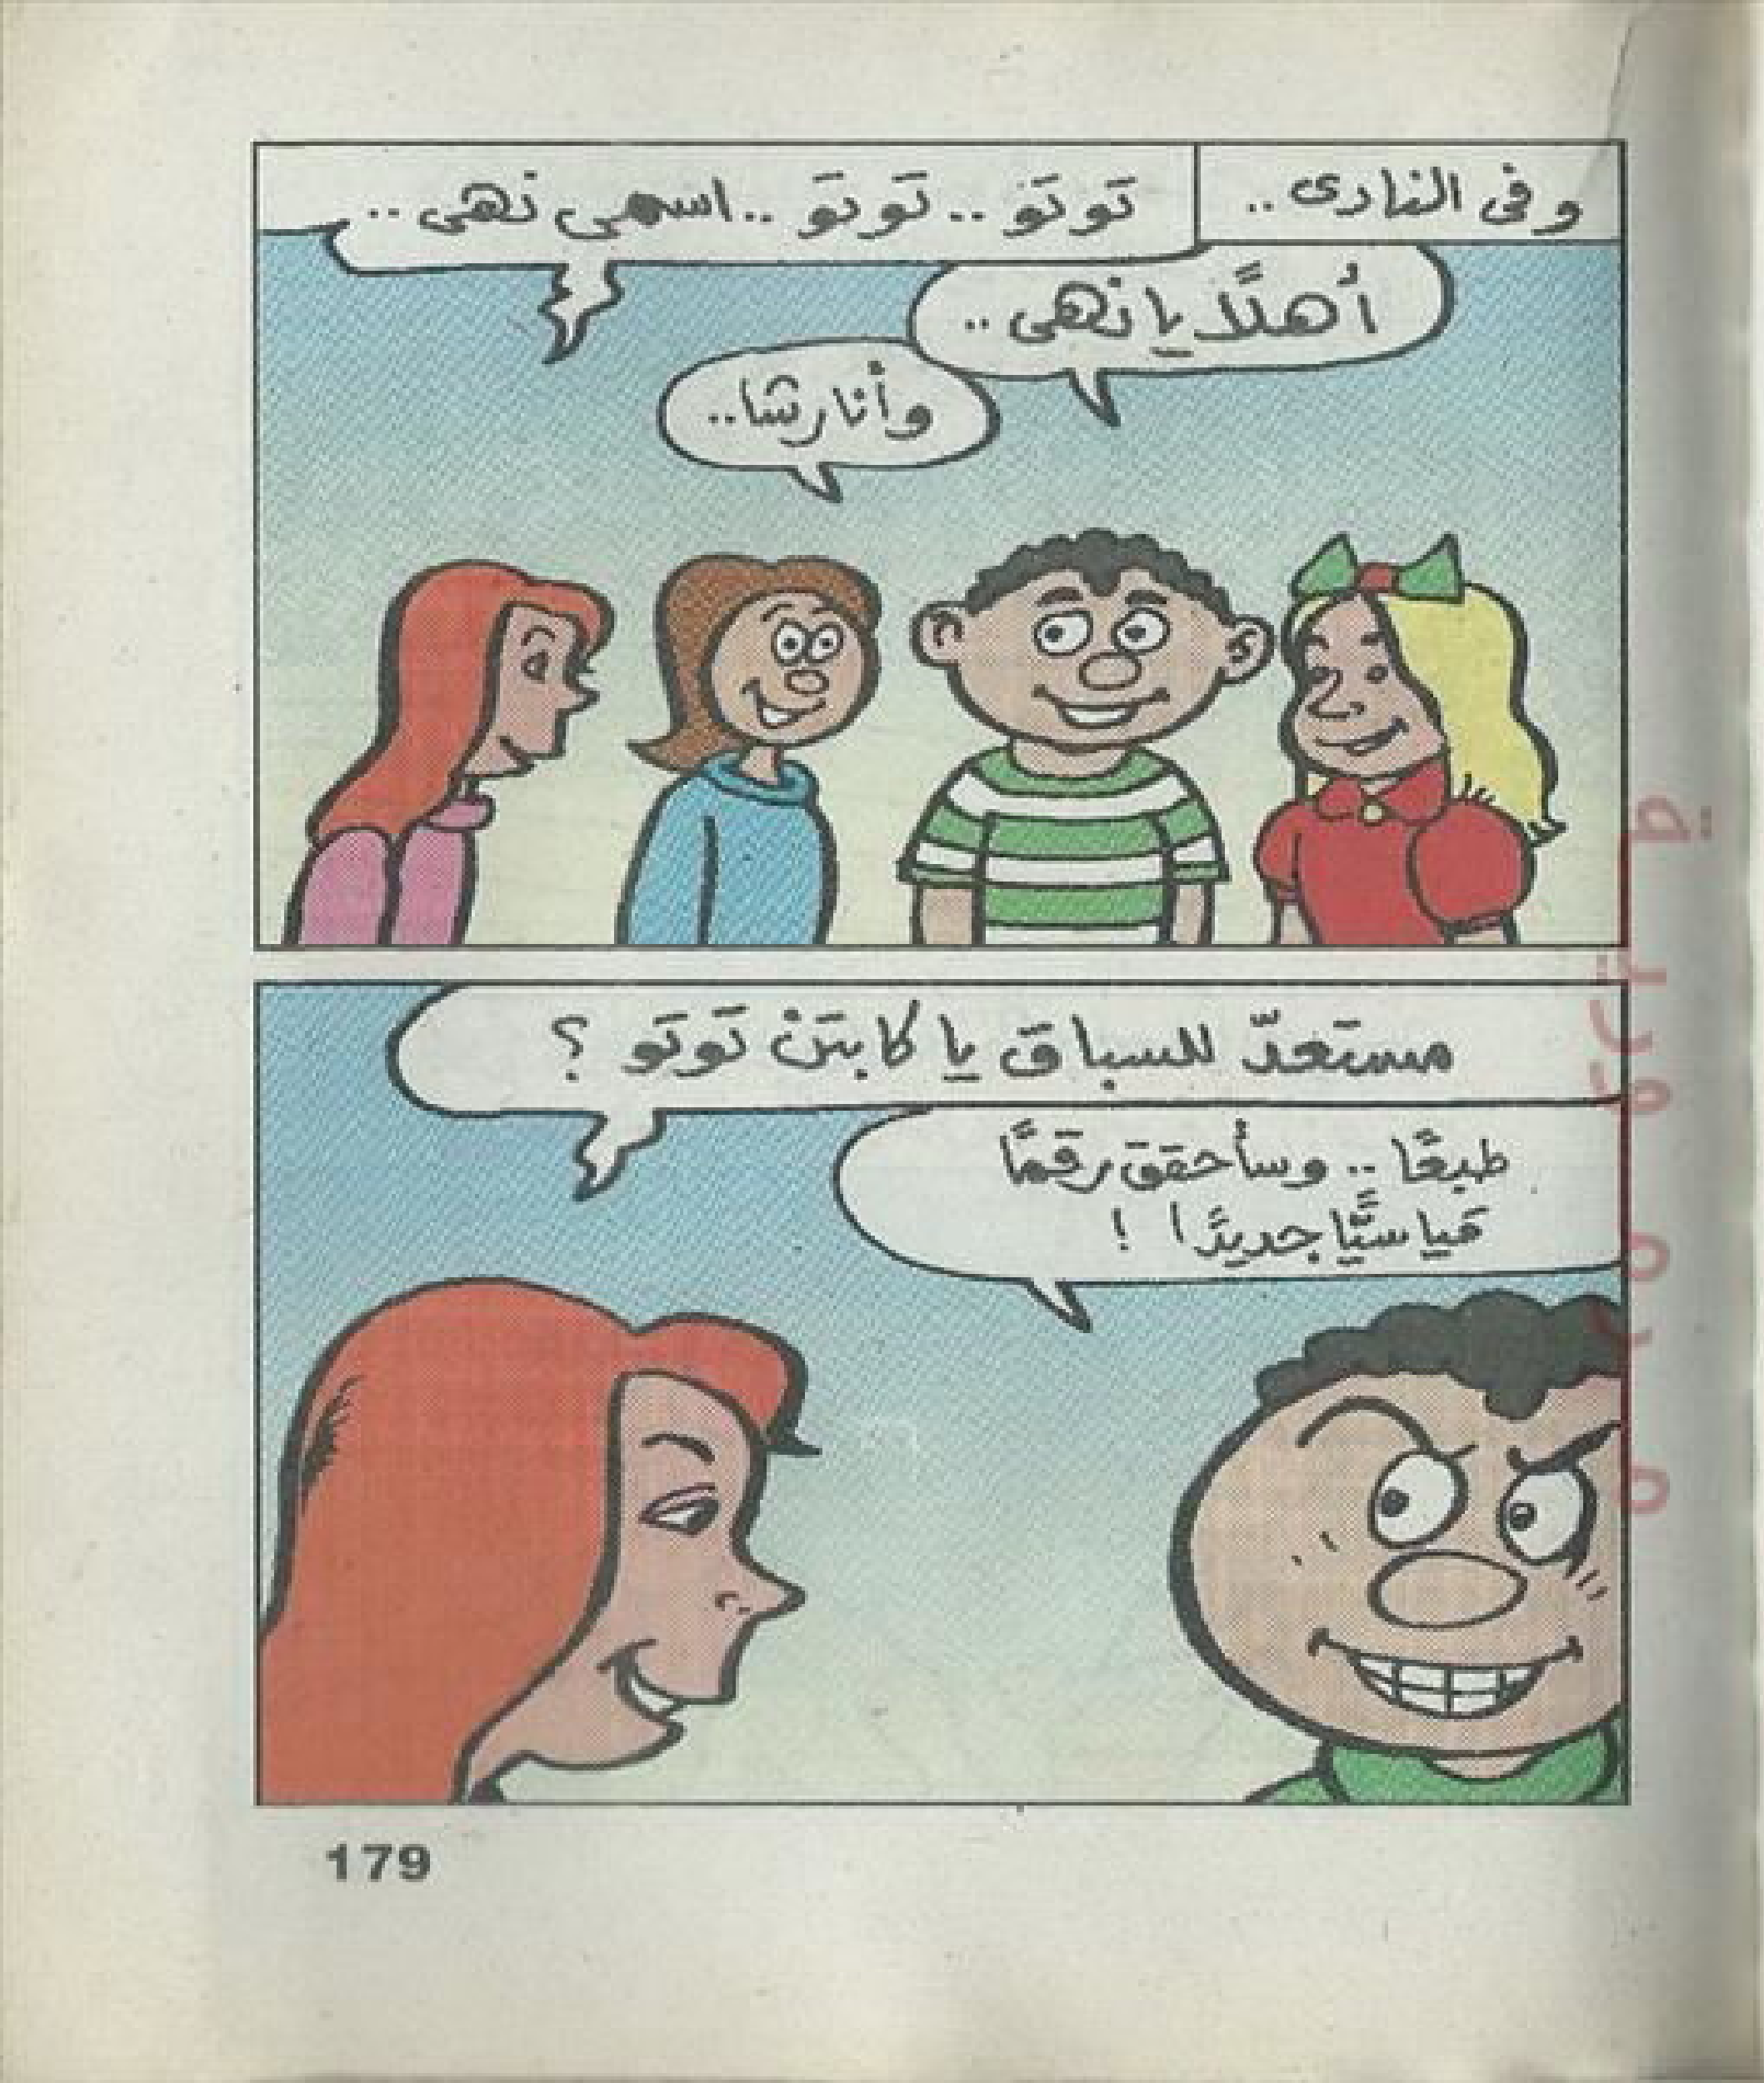 وفى النادى ..
تَوتَو .. تَوتَو .. اسمى نهى ..
أهلًا يا نهى ..
وأنا رشا ..
مستعدّ للسباق يا كابتنْ تَوتَو ؟
طبعًا .. وسأحقق رقمًا
قياسيًّا جديدًا !
179